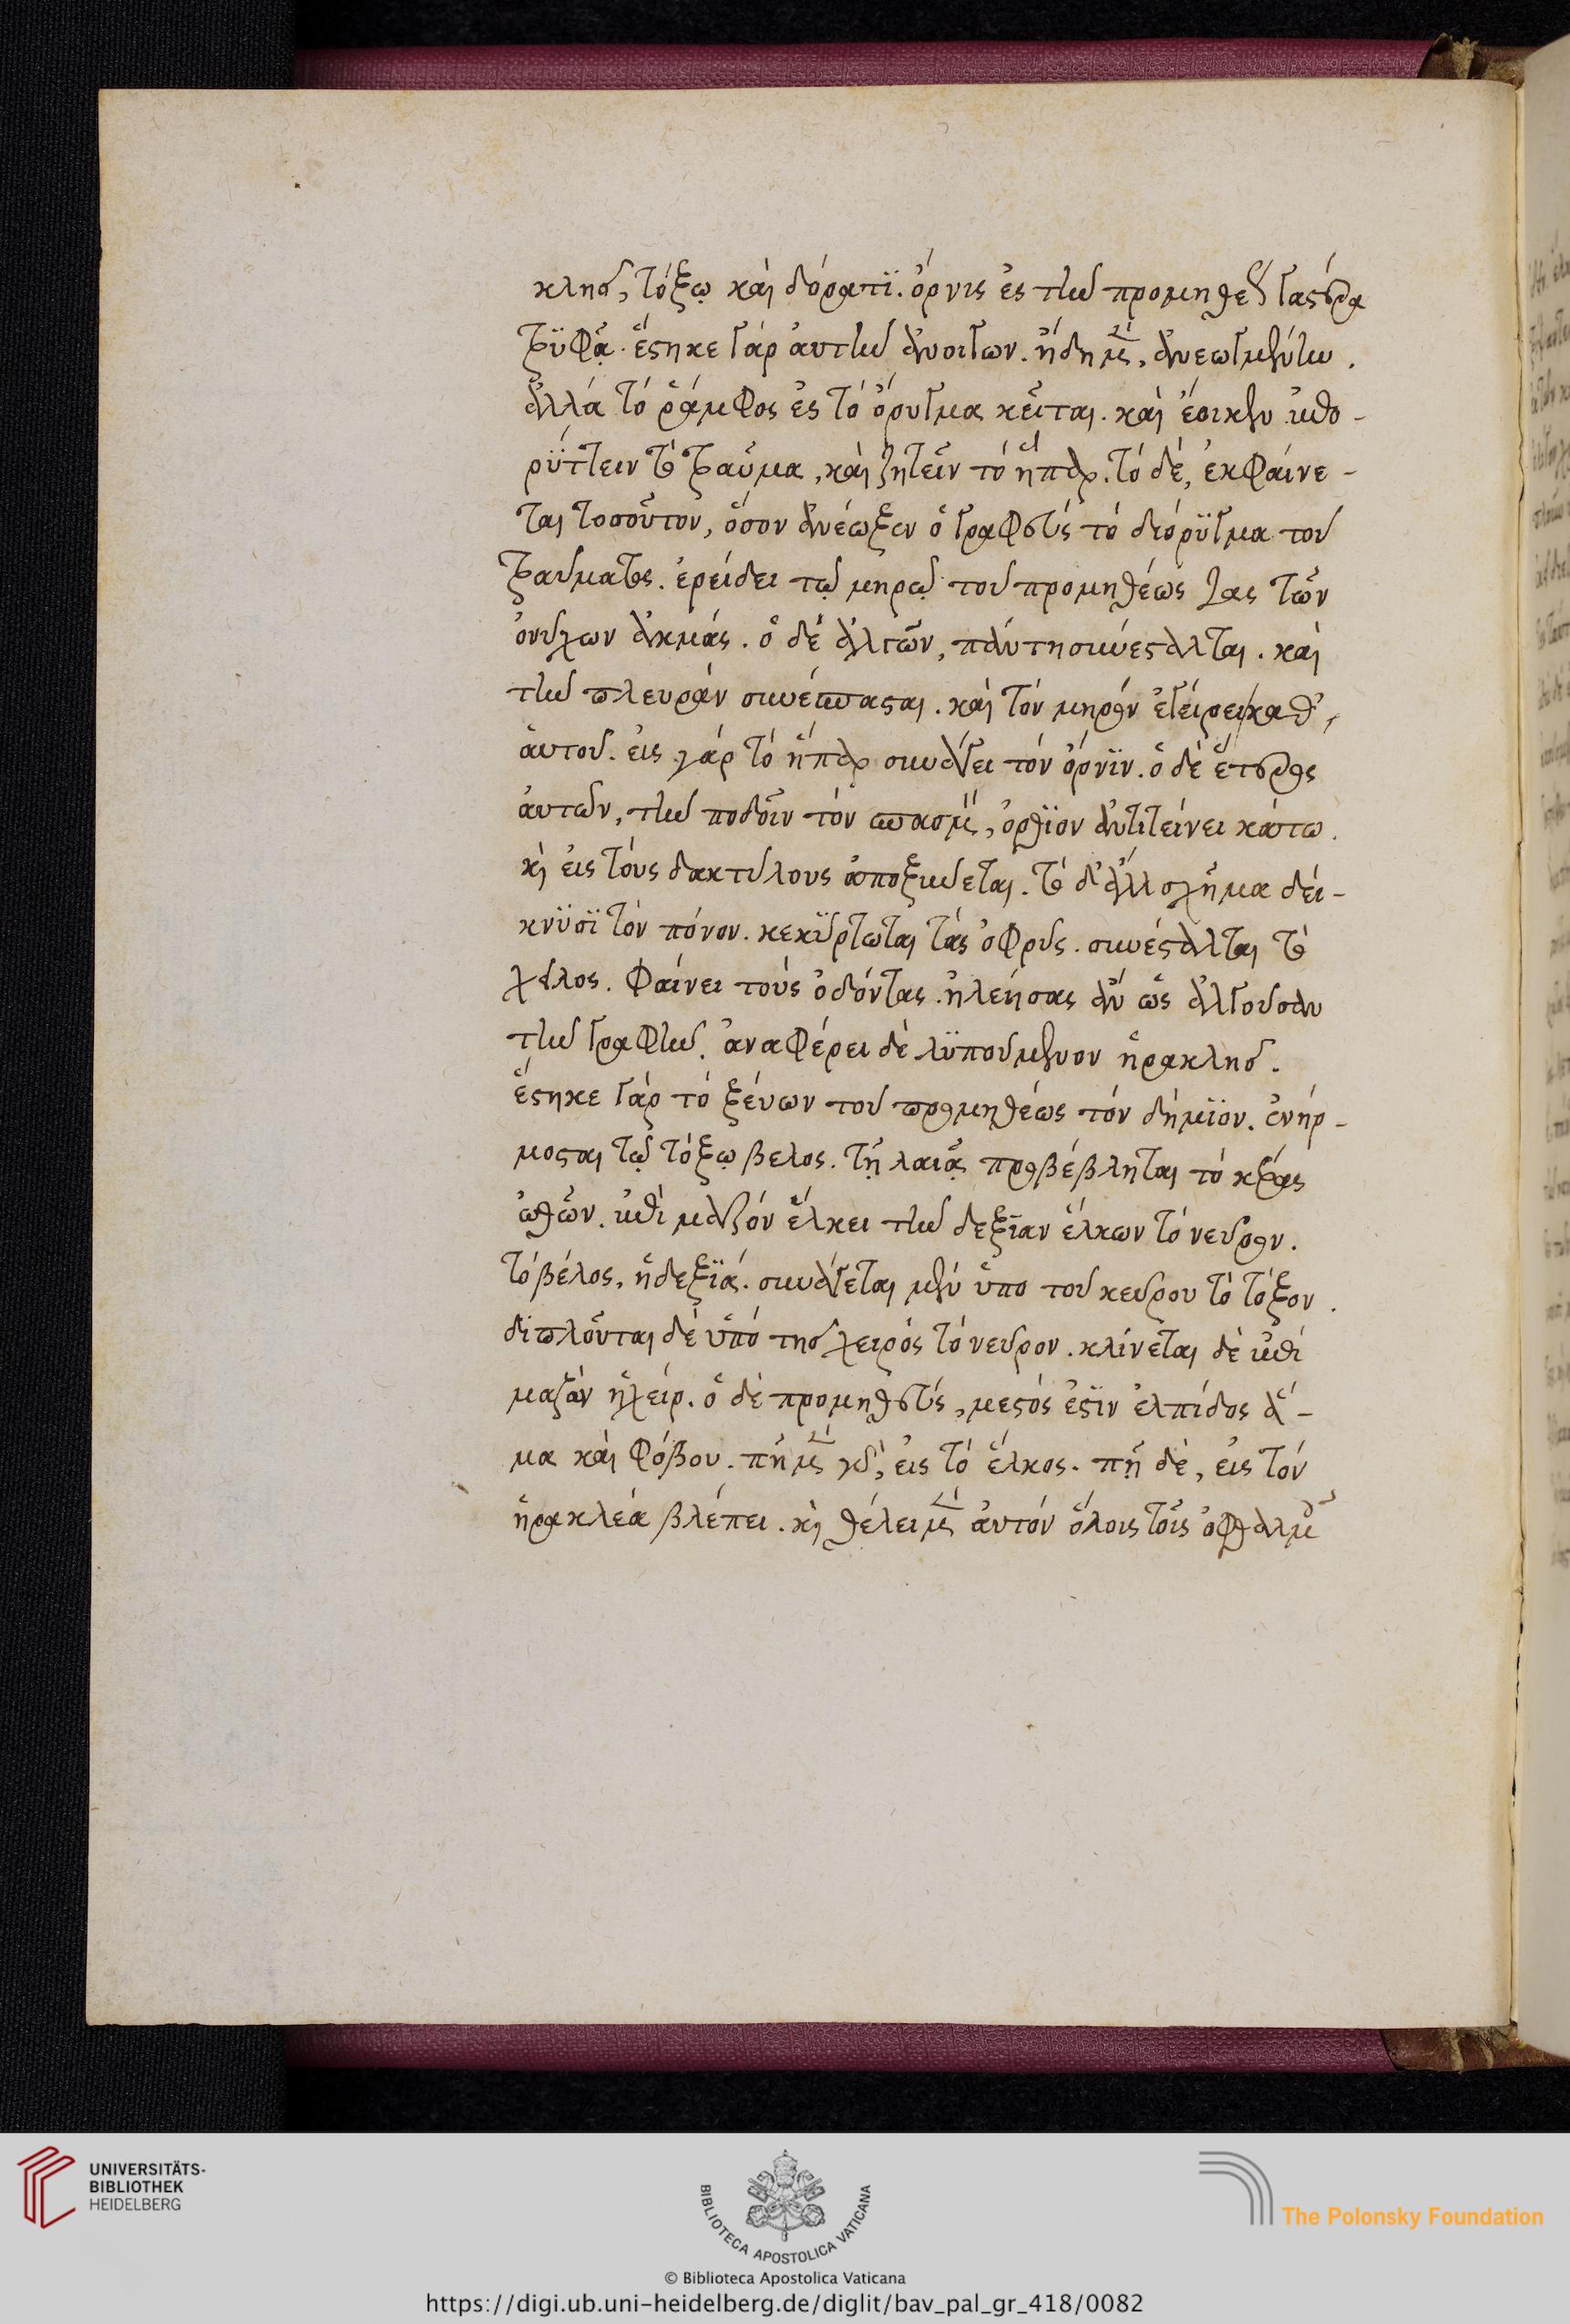 κλησ, τόξῳ καὶ δόρατϊ. ὄρνις ἐς τὴν προμηθέως γαστέρα
τρϋφᾷ. ἕστηκε γὰρ ἀυτὴν ἀνοίγων. ἤδη μὲν, ἀνεωγμένην.
ἀλλὰ τὸ ῥάμφος ἐς τὸ ὄρυγμα κεῖται. καὶ ἔοικεν ἐπο-
ρϋττειν τὸ τραῦμα, καὶ ζητεῖν τὸ ἧπαρ. τὸ δὲ, ἐκφαίνε-
ται τοσοῦτον, ὅσον ἀνέωξεν ὁ γραφεὺς τὸ διόρϋγμα τοῦ
τραύματος. ἐρείδει τῷ μηρῷ τοῦ προμηθέως τας τῶν
ὀνύχων ἀκμάς. ὁ δὲ ἀλγῶν, πάντη συνέσταλται. καὶ
τὴν πλευρὰν συνέσπασται. καὶ τὸν μηρὸν ἐγείρει καθ'
ἁυτοῦ. εἰς γὰρ τὸ ἧπαρ συνάγει τὸν ὄρνϊν. ὁ δὲ ἕτερος
ἀυτῶν, τὴν ποδοῖν τὸν σπασμὸν, ὄρθϊον ἀντιτείνει κάτω.
κὶ εἰς τοὺς δακτύλους ἀποξύνεται. τὸ δ' ἄλλο σχῆμα δεί-
κνϋσϊ τὸν πόνον. κεκϋρτωται τὰς ὀφρῦς. συνέσταλται τὸ
χεῖλος. φαίνει τοὺς ὀδόντας. ἠλέησας ἂν ὡς ἀλγοῦσαν
τὴν γραφὴν. ἀναφέρει δὲ λϋπούμενον ἡρακλησ.
ἕστηκε γὰρ τὸ ξένων τοῦ προμηθέως τὸν δήμϊον. ἐνήρ-
μοσται τῷ τόξῳ βελος. τῇ λαιᾷ προβέβληται τὸ κέρας
ὠθῶν. ἐπὶ μαζὸν ἕλκει τὴν δεξϊαν ἕλκων τὸ νεῦρον.
τὸ βέλος, ἡ δεξϊά. συνάγεται μὲν ὑπο τοῦ κευρου τὸ τόξον.
διπλοῦται δὲ ὑπὸ τησ χειρὸς τὸ νεῦρον. κλίνεται δὲ ἐπὶ
μαζὸν ἡ χείρ. ὁ δὲ προμηθεὺς, μεστός ἐστϊν ἐλπίδος ἅ-
μα καὶ φόβου. πῆ μὲν γὰρ, εἰς τὸ ἕλκος. πῆ δὲ, εἰς τὸν
ἡρακλέα βλέπει. κὶ θέλει μὲν ἀυτὸν ὅλοις τοῖς ὀφθαλμοῖς
UNIVERSITÄTS-
BIBLIOTHEK
HEIDELBERG
BIBLIOTECA APOSTOLICA VATICANA
The Polonsky Foundation
© Biblioteca Apostolica Vaticana
https://digi.ub.uni-heidelberg.de/diglit/bav_pal_gr_418/0082